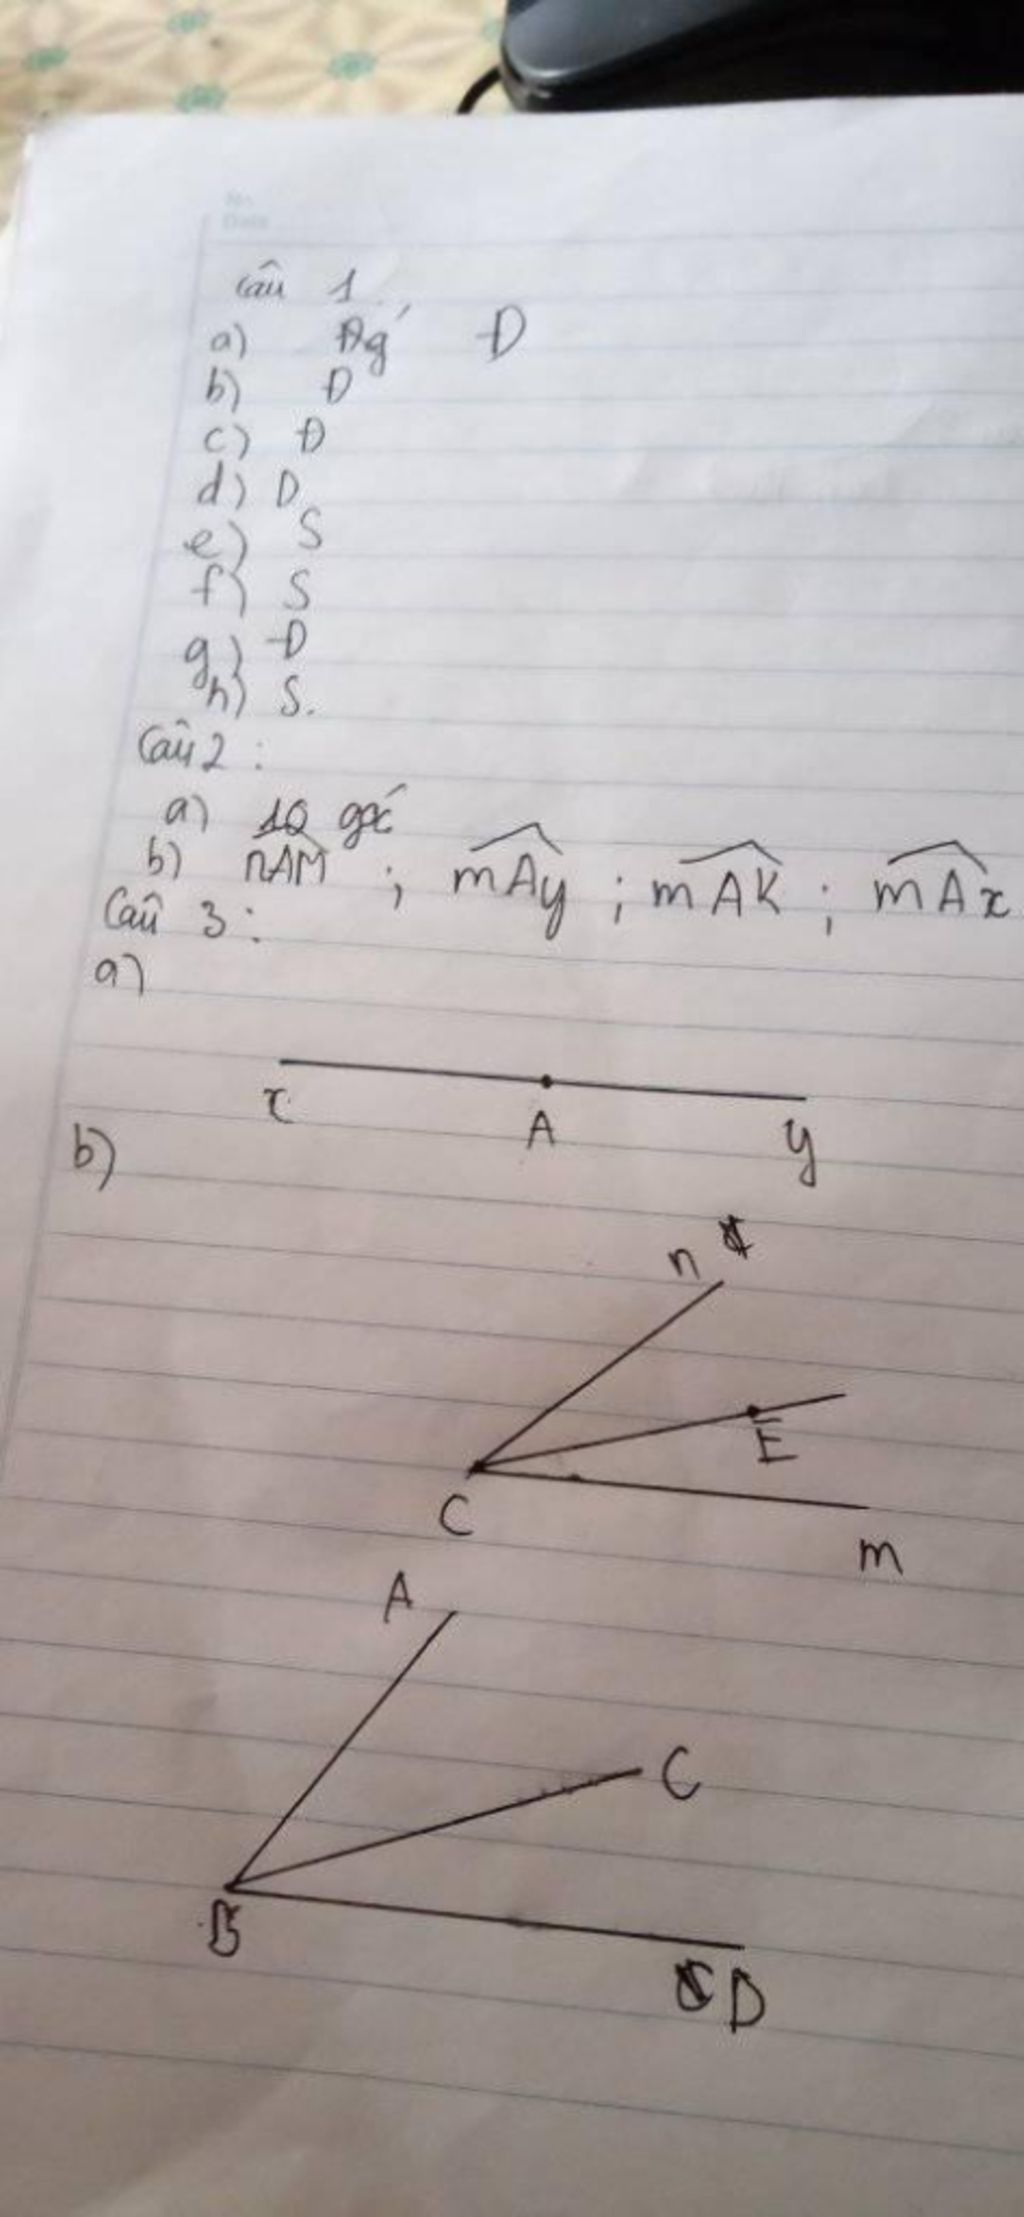 No.
Date
Câu 1
a) Đ
b) Đ
c) Đ
d) D
e) S
f) S
g) Đ
h) S.
Câu 2 :
a) 10 góc
b) nAM ; mAy ; mAK ; mAx
Câu 3 :
a)
x A y
b)
n
E
C
m
A
C
B
D